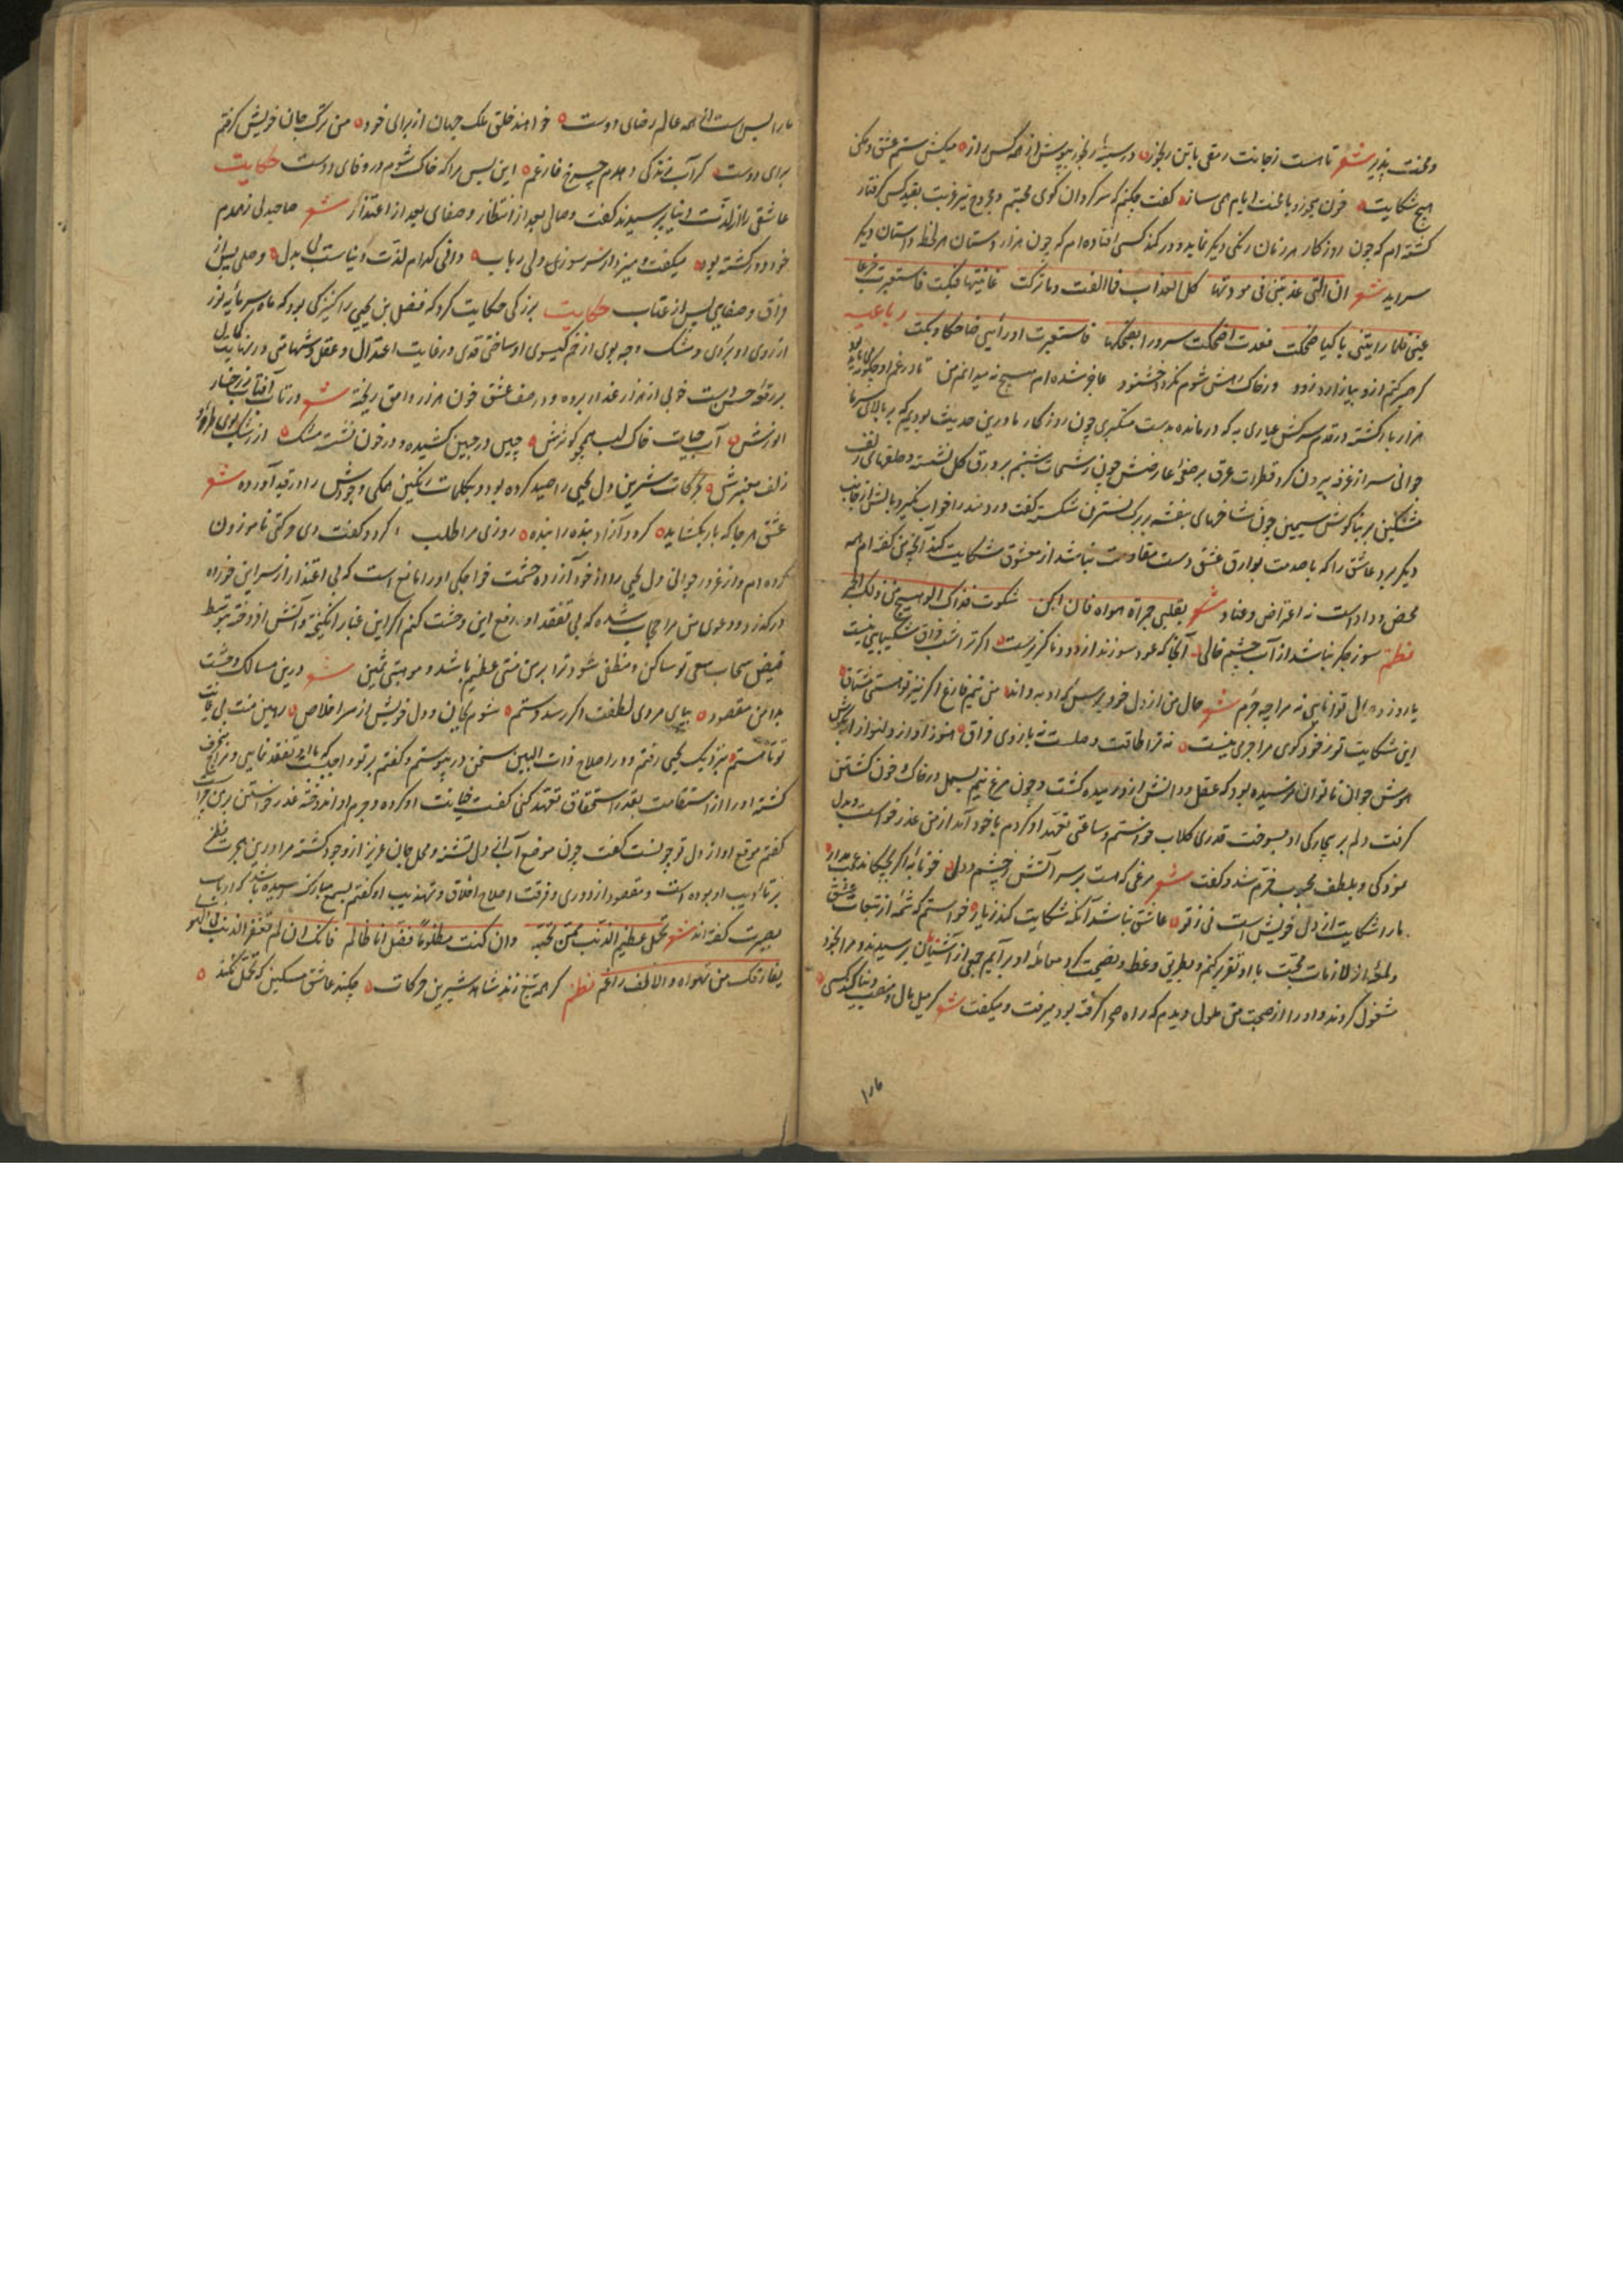 ومحنت پذیر شعر تا هست ز جانت رمقی با تن رنجور در سینهٔ رنجور بپوش از همه کس راز میکش ستم عشق و مکن
هیچ شکایت خون میخور و با محنت ایام می ساز گفت چکنم که سرگردان کوی محبتم و مجروح تیر غربت بقید کسی گرفتار
گشته ام که چون روزگار هر زمان رنگی دیگر نماید و در کمند کسی افتاده ام که چون هزار دستان هر لحظه داستان دیگر
سراید شعر ان التی عذبتنی فی مودتها کل العذاب فما القت وما ترکت عاتبتها فبکت فاستعبرت جزعا
عینی فلما راتنی باکیا ضحکت فعدت اضحکت سرورا بضحکتها فاستعبرت اذ راتنی ضاحکا وبکت رباعیه
گر صبر کنم ازو بیازارد زود در خاک رهش شوم نگردد خشنود عاجز شده ام هیچ نمیدانم من تا در غم او چگونه می باید بود
هزار بار کشته در قدم سرکش عیاری به که درمانده بدست ستمگری چون روزگار ما درین حدیث بودیم که بر بالای سر ما
جوانی سر از غرفه بیرون کرد قطرات عرق بر صفحهٔ عارضش چون رشحات شبنم بر ورق گل نشسته و حلقهای زلف
مشکین بر بناگوش سیمین چون شاخهای بنفشه بر برگ نسترن شکسته گفت دردمند را خواب نگیرد بالش از جانب
دیگر برد عاشق را که با صدمت بوارق عشق دست مقاومت نباشد از معشوق شکایت کند آنچه من گفته ام همه
محض وداد است نه اعتراض و عناد شعر بقلبی جراة هواه فان ابکن شکوت فذاک الوهیج من ذلک الجمر
نظم سوز جگر نباشد از آب چشم خالی آنجا که عود سوزند از دود ناگزیرست اگر ترا شب فراق شکیبایی نیست
یا روز وصال توانایی نه مرا چه جرم شعر حال من از دل خود پرس که او به داند من نیم فارغ اگر نیز تو هستی مشتاق
این شکایت تو ز خود گوی مرا جرمی نیست نه ترا طاقت وصلست نه بازوی فراق هنوز آواز دلنواز او بگوش
هوش جوان ناتوان نرسیده بود که عقل و دانش ازو رمیده گشت و چون مرغ نیم بسمل در خاک و خون گشتن
گرفت دلم بر بیچارگی او بسوخت قدری گلاب خواستم و ساعتی تعهد او کردم با خود آمد از من عذر خواست و بدل
موزکی و بلطف محبوب خرم شد و گفت شعر مرغی که هست بر سر آتش ز چشم و دل خونابه اگر بچکاند عجب مدار
ما را شکایت از دل خویش است نی ز تو عاشق نباشد آنکه شکایت کند ز یار خواستم که شمهٔ از تبعات عشق
ولمحهٔ از لازمات محبت با او تقریر کنم و بطریق وعظ و نصیحت گرد معاملهٔ او برآیم جمعی از آشنایان برسیدند و مرا بخود
مشغول کردند و او را از صحبت من ملول دیدم که راه صحرا گرفته بود میرفت و میگفت شعر گر میل مال و منصب دنیا کند کسی
ما را
ما را بس است از همه عالم رضای دوست خواهند خلق ملک جهان از برای خود من ترک جان خویش گرفتم
برای دوست گر آب زندگی دهدم چرخ فارغم این بس مرا که خاک شوم در وفای دوست حکایت
عاشقی را از لذت دنیا پرسیدند گفت وصالی بعد از انتظار و صفای بعد از اعتذار شعر صاحبدلی ز همدم
خود دور گشته بود میگفت و میزد از سر سوزی دلی رباب دانی کدام لذت دنیاست بی بدل وصلی پس از
فراق و صفایی پس از عتاب حکایت بزرگی حکایت کرد که فضل بن یحیی را کنیزکی بود که ماه سرمایه نور
از روی او بردی و مشک وجه بوی از خم گیسوی او ساختی قدی در غایت اعتدال و عقل و شهامتی در نهایت کمال
بر رقعهٔ حسن دست خوبی از هزار عذرا برده و در صف عشق خون هزار وامق ریخته شعر در تاب آفتاب ز رخسار
انورش آب حیات خاک لب همچو کوثرش چین در جبین کشیده و در خون نشسته مشک از رشک بوی طرهٔ
زلف معنبرش بحرکات شیرین دل یحیی را صید کرده بود و بکلمات رنگین همگی وجودش را در قید آورده شعر
عشق هر جا که بار بگشاید گردد آزاد بنده را بنده روزی مرا طلب کرد و گفت دی حرکتی ناموزون
کرده ام و از غرور جوانی دل یحیی را از خود آزرده حشمت خواجگی او را مانع است که بی اعتذار از سر این خرده
درگذرد و دعوی من مرا حجاب شده که بی تفقد او رفع این وحشت کنم اگر این غبار انگیخته و آتش افروخته بتوسط
فیض سحاب سعی تو ساکن و منطفی شود ترا بر من منتی عظیم باشد و موهبتی ثمین شعر درین مسالک وحشت
بدامن مقصود بپای مردی لطفت اگر رسد دستم شوم بجان و دل خویش از سر اخلاص رهین منت بی غایت
تو تا هستم بنزدیک یحیی رفتم و در اصلاح ذات البین سخن در پیوستم و گفتم بر تو واجبست که با او تفقد نمایی و مزاج منحرف
گشتهٔ او را از استقامت بقدر استحقاق تعهد کنی گفت خیانت او کرده و جرم او اندوخته عذر خواستن بر من چراست
گفتم موقع او از دل تو چونست گفت چون موقع آب از دل تشنه و محل جان عزیز از وجود گشته مرا درین هجرت تلخ
بر تادیب او بوده است و مقصود از دوری و فرقت اصلاح اخلاق و تهذیب او گفتم بسمع مبارک رسیده باشد که ارباب
بصیرت گفته اند شعر تحمل عظیم الذنب ممن تحبه وان کنت مظلوما فقل انا ظالم فانک ان لم تغفر الذنب فی الهوی
یفارقک من تهواه والانف راغم نظم گر همه تیغ زند شاهد شیرین حرکات چکند عاشق مسکین که تحمل نکند